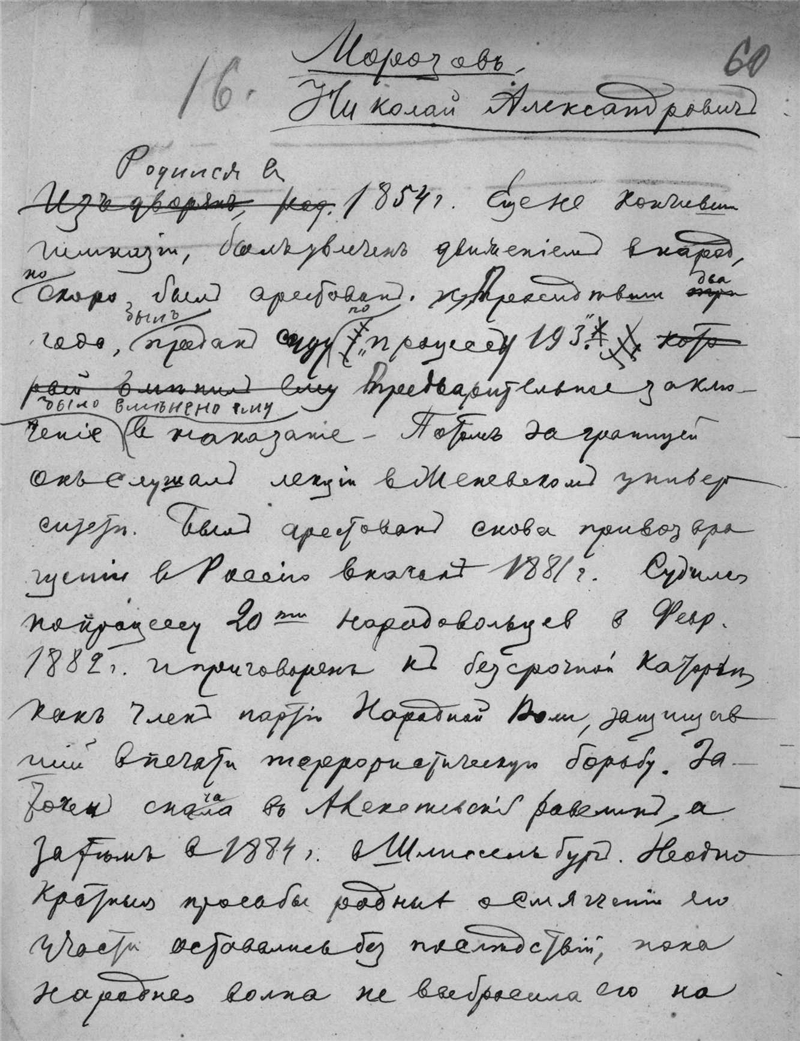 16.
Морозовъ,
60
Николай Александрович
Родился в
Изъ дворянъ, род. 1854 г. Еще не кончивши
гимназіи, былъ увлеченъ движеніемъ в народ,
но
скоро был арестован. Просидѣвши два
года, былъ предан суду по "процессу 193"
рый вмѣнил ему Предварительное заклю-
было вмѣнено ему
ченіе в наказаніе - Потомъ за границей
онъ слушал лекціи в Женевском универ
ситетѣ. Был арестован снова при возвра
щеніи в Россію в началѣ 1881 г. Судился
по процессу 20ти народовольцев в Февр.
1882 г. и приговоренъ к безсрочной каторгѣ,
какъ член партіи Народной Воли, защищав
шій в печати террористическую борьбу. За-
точен сначала въ Алексѣевскій равелин, а
затѣмъ в 1884 г. в Шлиссельбург. Неодно
кратныя просьбы родных о смягченіи его
участи оставались без послѣдствій, пока
народная волна не выбросила его на